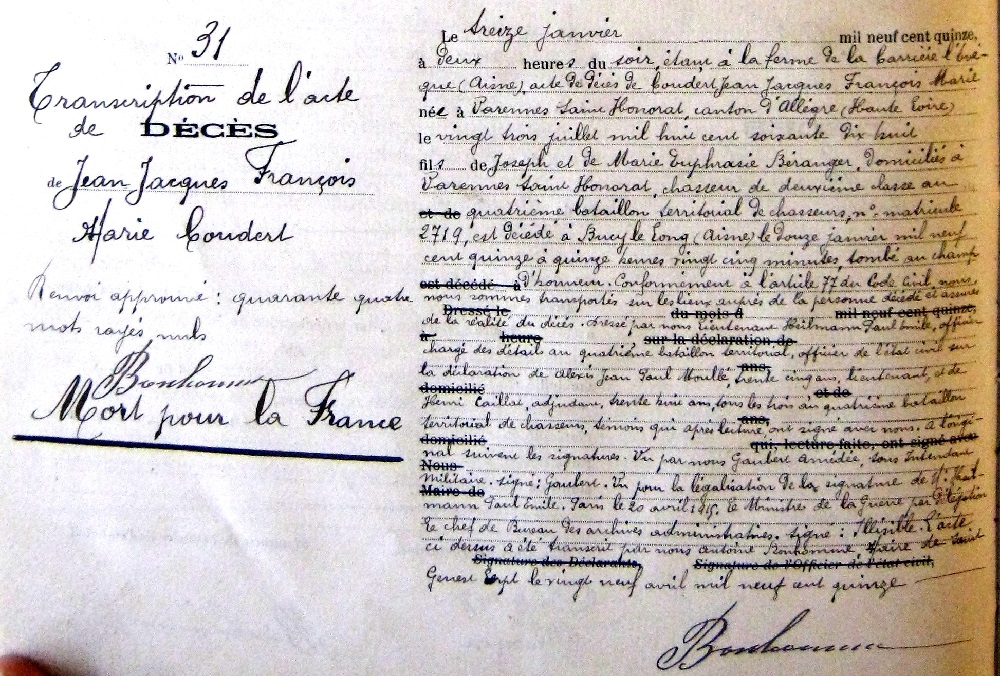 N° 31
Transcription de l'acte
de DÉCÈS
de Jean Jacques François
Marie Coudert
Renvoi approuvé : quarante quatre
mots rayés, nuls
Bonhomme
Mort pour la France
Le treize janvier mil neuf cent quinze,
à deux heures du soir, étant à la ferme de la Carrière l'Evê-
que (Aisne) acte de décès de Coudert Jean Jacques François Marie
née à Varennes Saint Honorat, canton d'Allègre (Haute Loire)
le vingt trois juillet mil huit cent soixante dix huit
fils de Joseph et de Marie Euphrasie Béranger, domiciliés à
Varennes Saint Honorat, chasseur de deuxième classe au
et de quatrième bataillon territorial de chasseurs, n° matricule
2719, est décédé à Bucy le Long (Aisne) le douze janvier mil neuf
cent quinze à quinze heures vingt cinq minutes, tombé au champ
est décédé à d'honneur. Conformément à l'article 77 du Code Civil, nous,
nous sommes transportés sur les lieux auprès de la personne décédé et assurés
Dressé le, du mois d mil neuf cent quinze,
de la réalité du décès. Dressé par nous Lieutenant Heilmann Paul Emile, officier
à heure sur la déclaration de
chargé des détails au quatrième bataillon territorial, officier de l'état civil sur
la déclaration de Alexis Jean Paul Moullé, trente cinq ans, lieutenant, et de
ans,
domicilié et de
Henri Caillat, adjudant, trente huit ans, tous les trois au quatrième bataillon
territorial de chasseurs, témoins qui après lecture ont signé avec nous. A l'origi-
ans,
domicilié qui, lecture faite, ont signé avec
nal suivent les signatures. Vu par nous Gaubert Amédée, sous Intendant
Nous
Militaire. signé : Gaubert. Vu pour la légalisation de la signature de
Maire de
mann Paul Emile. Paris le 20 avril 1915, le Ministre de la Guerre par délégation
le chef de Bureau des archives administratives. signé : Illisible. L'acte
ci dessus a été transcrit par nous Antoine Bonhomme, Maire de Saint
Signature des Déclarants, Signature de l'Officier de l'état civil,
Genest le vingt neuf avril mil neuf cent quinze
Bonhomme